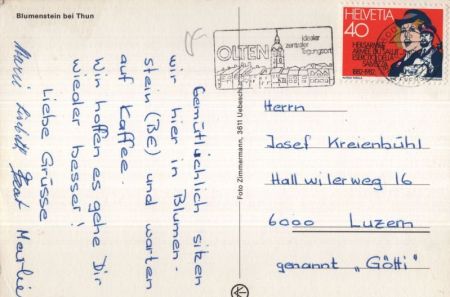 Blumenstein bei Thun
Gemütlichlich sitzen
wir hier in Blumen-
stein (BE) und warten
auf Kaffee.
Wir hoffen es gehe Dir
wieder besser!
Liebe Grüsse
Marlie
Beat
Foto Zimmermann, 3611 Uebeschi
OLTEN
idealer
zentraler
Tagungsort
HELVETIA
40
HEILSARMEE
ARMEE DU SALUT
ESERCITO DELLA
SALVEZZA
1882-1982
Herrn
Josef Kreienbühl
Hallwilerweg 16
6000 Luzern
genannt "Götti"